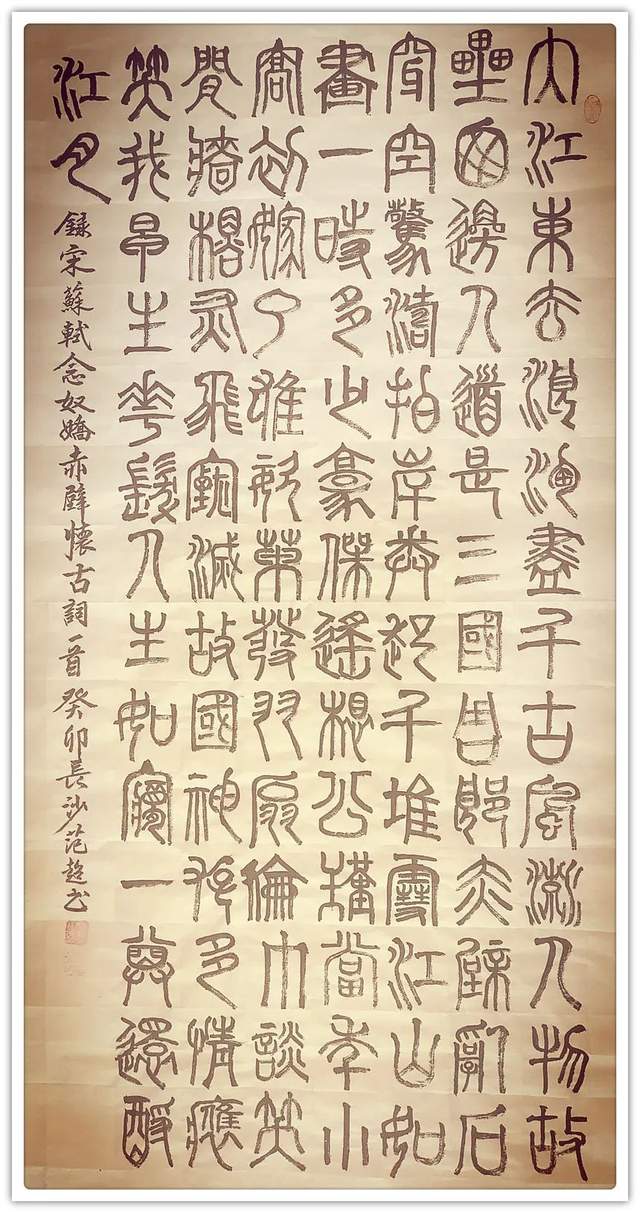 大江東去浪淘盡千古風流人物故
壘西邊人道是三國周郎赤壁亂石
穿空驚濤拍岸卷起千堆雪江山如
畫一時多少豪傑遙想公瑾當年小
喬初嫁了雄姿英發羽扇綸巾談笑
間檣櫓灰飛煙滅故國神游多情應
笑我早生華髮人生如夢一尊還酹
江月
錄宋蘇軾念奴嬌赤壁懷古詞一首 癸卯長沙范超书